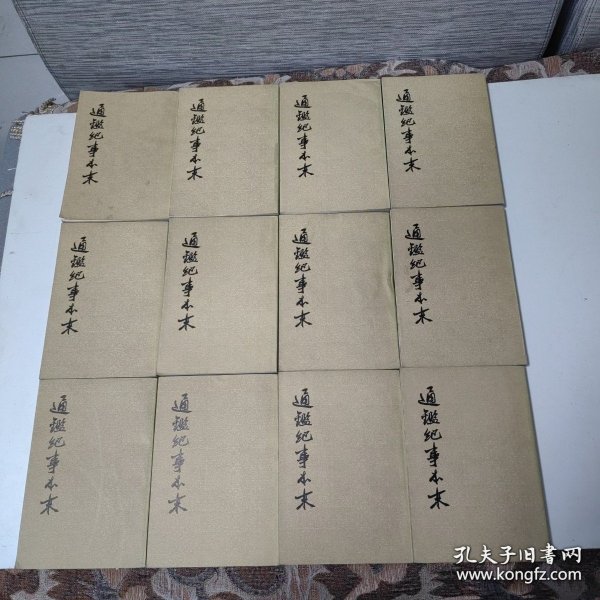 通鑑紀事本末
通鑑紀事本末
通鑑紀事本末
通鑑紀事本末
通鑑紀事本末
通鑑紀事本末
通鑑紀事本末
通鑑紀事本末
通鑑紀事本末
通鑑紀事本末
通鑑紀事本末
通鑑紀事本末
孔夫子旧书网
www.kongfz.com